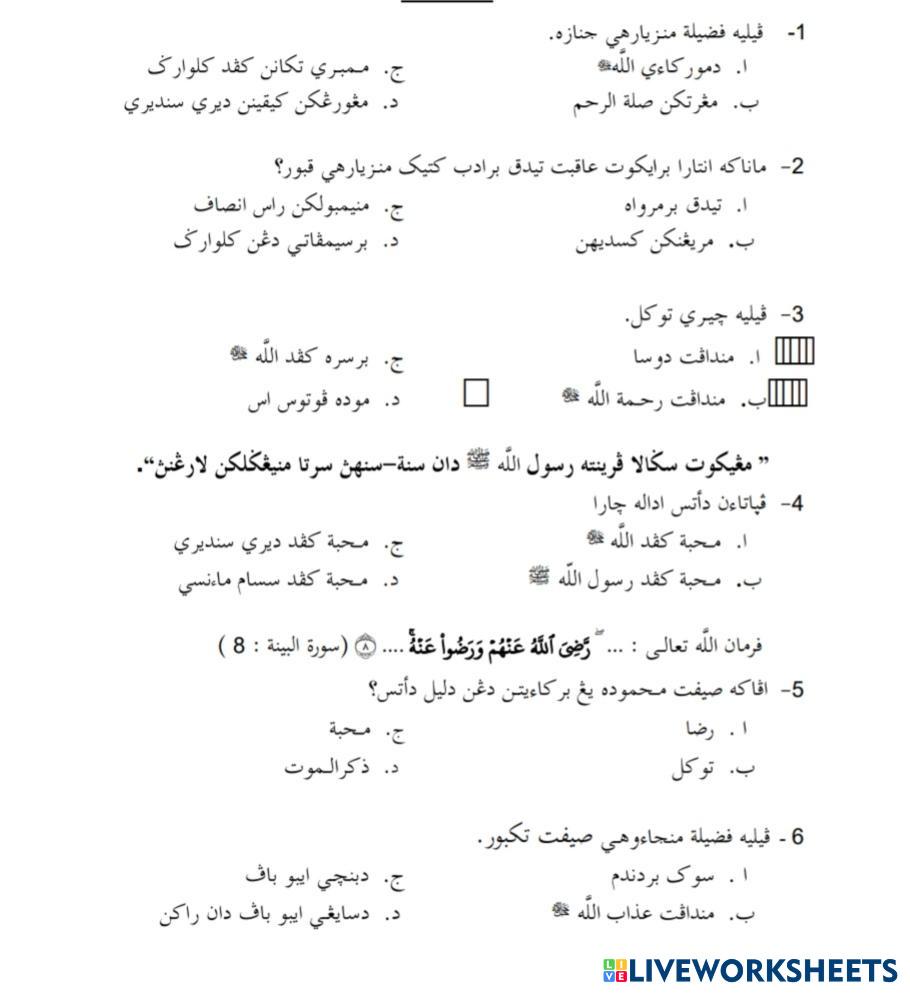 1- ڤيليه فضيلة منزيارهي جنازه.
ا. دموركاءي اللّهﷻ ج. ممبري تكانن كڤد كلوارݢ
ب. مڠرتكن صلة الرحم د. مڠورڠكن كيقينن ديري سنديري
2- ماناكه انتارا برايكوت عاقبت تيدق برادب كتيک منزيارهي قبور؟
ا. تيدق برمرواه ج. منيمبولكن راس انصاف
ب. مريڠنكن كسديهن د. برسيمڤاتي دڠن كلوارݢ
3- ڤيليه چيري توكل.
ا. منداڤت دوسا ج. برسره كڤد اللّه ﷻ
ب. منداڤت رحمة اللّه ﷻ د. موده ڤوتوس اس
” مڠيكوت سݢالا ڤرينته رسول اللّه ﷺ دان سنة–سنهڽ سرتا منيڠݢلكن لارڠنڽ“.
4- ڤڽاتاءن دأتس اداله چارا
ا. محبة كڤد اللّه ﷻ ج. محبة كڤد ديري سنديري
ب. محبة كڤد رسول اللّه ﷺ د. محبة كڤد سسام ماءنسي
فرمان اللّه تعالى : ... ۖ رَّضِيَ ٱللَّهُ عَنۡهُمۡ وَرَضُواْ عَنۡهُۚ .... ٨ (سورة البينة : 8 )
5- اڤاكه صيفت محموده يڠ بركاءيتن دڠن دليل دأتس؟
ا. رضا ج. محبة
ب. توكل د. ذكرالموت
6- ڤيليه فضيلة منجاءوهي صيفت تكبور.
ا. سوک بردندم ج. دبنچي ايبو باڤ
ب. منداڤت عذاب اللّه ﷻ د. دسايڠي ايبو باڤ دان راكن
LIVE LIVEWORKSHEETS